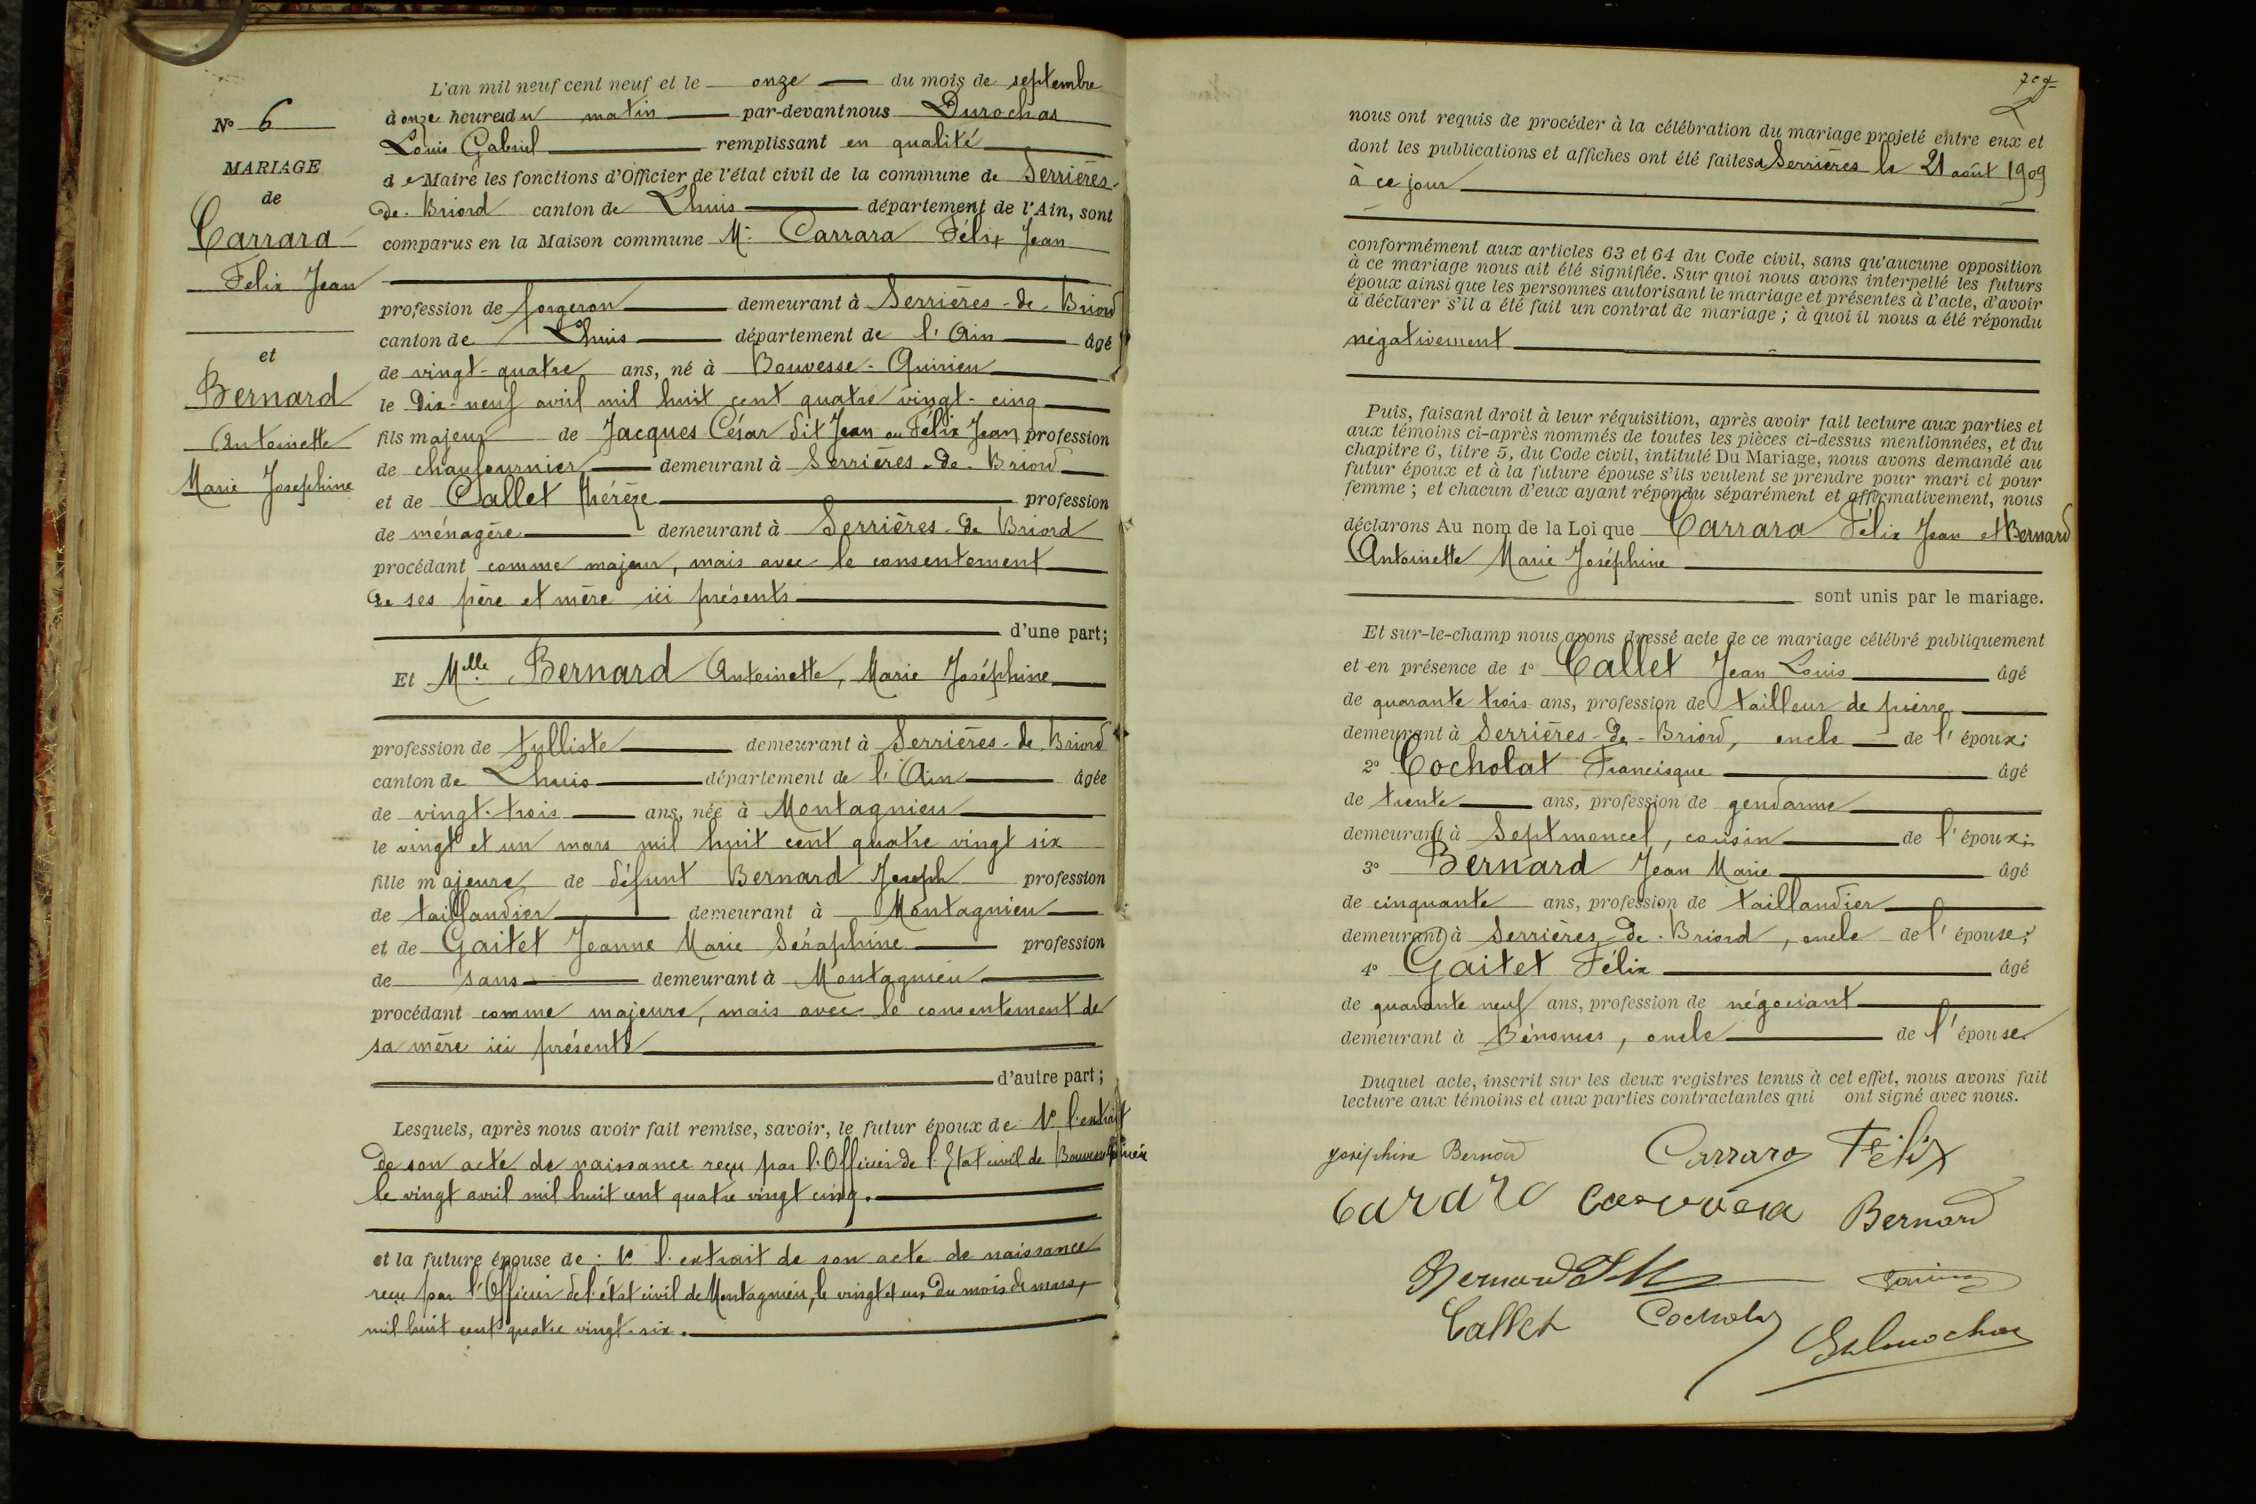 N° 6
MARIAGE
de
Carrara
Felix Jean
et
Bernard
Antoinette
Marie Josephine
L'an mil neuf cent neuf et le onze du mois de septembre
à onze heures du matin par-devant nous Durochas
Louis Gabriel remplissant en qualité
de Maire les fonctions d'Officier de l'état civil de la commune de Serrières-
de-Briord canton de Lhuis département de l'Ain, sont
comparus en la Maison commune Mr Carrara Félix Jean
profession de forgeron demeurant à Serrières-de-Briord
canton de Lhuis département de l'Ain âgé
de vingt-quatre ans, né à Bouvesse-Quirieu
le Dix-neuf avril mil huit cent quatre vingt-cinq
fils majeur de Jacques César dit Jean ou Félix Jean profession
de chaufournier demeurant à Serrières-de-Briord
et de Callet thérèze profession
de ménagère demeurant à Serrières-de Briord
procédant comme majeur, mais avec le consentement
de ses père et mère ici présents
d'une part;
Et Mlle Bernard Antoinette, Marie Joséphine
profession de tulliste demeurant à Serrières-de-Briord
canton de Lhuis département de l'Ain âgée
de vingt-trois ans, née à Montagnieu
le vingt et un mars mil huit cent quatre vingt six
fille majeure de défunt Bernard Joseph profession
de taillandier demeurant à Montagnieu
et de Gaitet Jeanne Marie Séraphine profession
de sans demeurant à Montagnieu
procédant comme majeure, mais avec le consentement de
sa mère ici présente
d'autre part;
Lesquels, après nous avoir fait remise, savoir, le futur époux de 1° l'extrait
de son acte de naissance reçu par l'Officier de l'Etat civil de Bouvesse-Quirieu
le vingt avril mil huit cent quatre vingt cinq.
et la future épouse de : 1° l'extrait de son acte de naissance
reçu par l'Officier de l'état civil de Montagnieu, le vingt et un du mois de mars,
mil huit cent quatre vingt-six.
nous ont requis de procéder à la célébration du mariage projeté entre eux et
dont les publications et affiches ont été faites à Serrières le 21 août 1909
à ce jour
conformément aux articles 63 et 64 du Code civil, sans qu'aucune opposition
à ce mariage nous ait été signifiée. Sur quoi nous avons interpellé les futurs
époux ainsi que les personnes autorisant le mariage et présentes à l'acte, d'avoir
à déclarer s'il a été fait un contrat de mariage ; à quoi il nous a été répondu
négativement
Puis, faisant droit à leur réquisition, après avoir fait lecture aux parties et
aux témoins ci-après nommés de toutes les pièces ci-dessus mentionnées, et du
chapitre 6, titre 5, du Code civil, intitulé Du Mariage, nous avons demandé au
futur époux et à la future épouse s'ils veulent se prendre pour mari et pour
femme ; et chacun d'eux ayant répondu séparément et affirmativement, nous
déclarons Au nom de la Loi que Carrara Félix Jean et Bernard
Antoinette Marie Joséphine
sont unis par le mariage.
Et sur-le-champ nous avons dressé acte de ce mariage célébré publiquement
et en présence de 1° Callet Jean Louis âgé
de quarante trois ans, profession de tailleur de pierre
demeurant à Serrières-de-Briord, oncle de l'époux;
2° Cocholat Francisque âgé
de trente ans, profession de gendarme
demeurant à Septmoncel, cousin de l'époux;
3° Bernard Jean Marie âgé
de cinquante ans, profession de taillandier
demeurant à Serrières-de-Briord, oncle de l'épouse;
4° Gaitet Félix âgé
de quarante neuf ans, profession de négociant
demeurant à Bénonces, oncle de l'épouse
Duquel acte, inscrit sur les deux registres tenus à cet effet, nous avons fait
lecture aux témoins et aux parties contractantes qui ont signé avec nous.
Joséphine Bernard Carrara Félix
Carara Carrara Bernard
Bernard JM
Callet Cochola